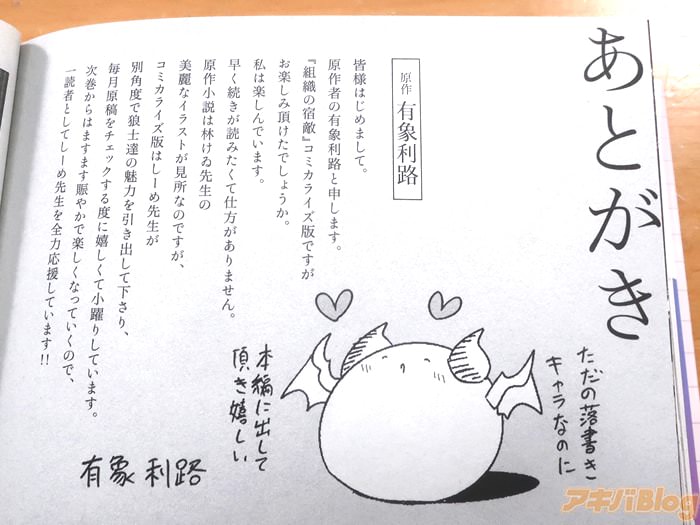 あとがき
原作 有象利路
皆様はじめまして。
原作者の有象利路と申します。
『組織の宿敵』コミカライズ版ですが
お楽しみ頂けたでしょうか。
私は楽しんでいます。
早く続きが読みたくて仕方がありません。
原作小説は林けゐ先生の
美麗なイラストが見所なのですが、
コミカライズ版はしーめ先生が
別角度で狼士達の魅力を引き出して下さり、
毎月原稿をチェックする度に嬉しくて小躍りしています。
次巻からはますます賑やかで楽しくなっていくので、
一読者としてしーめ先生を全力応援しています!!
ただの落書き
キャラなのに
本編に出して
頂き嬉しい
有象利路
アキバBlog